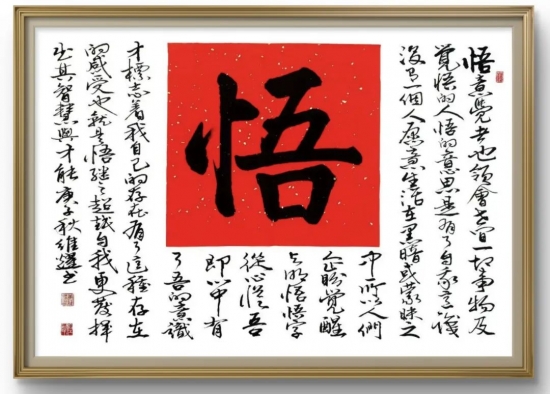 悟
悟意覺者也領會世間一切事物及
覺悟的人悟的意思是有了自我意識
沒有一個人願意生活在黑暗或蒙昧之
中所以人們
企盼覺醒
明悟悟字
從心從吾
即心中有
了吾的意識
才標志着我自己的存在有了這種存在
的感受也就是悟繼之超越自我更發揮
出其智慧與才能庚子秋維書